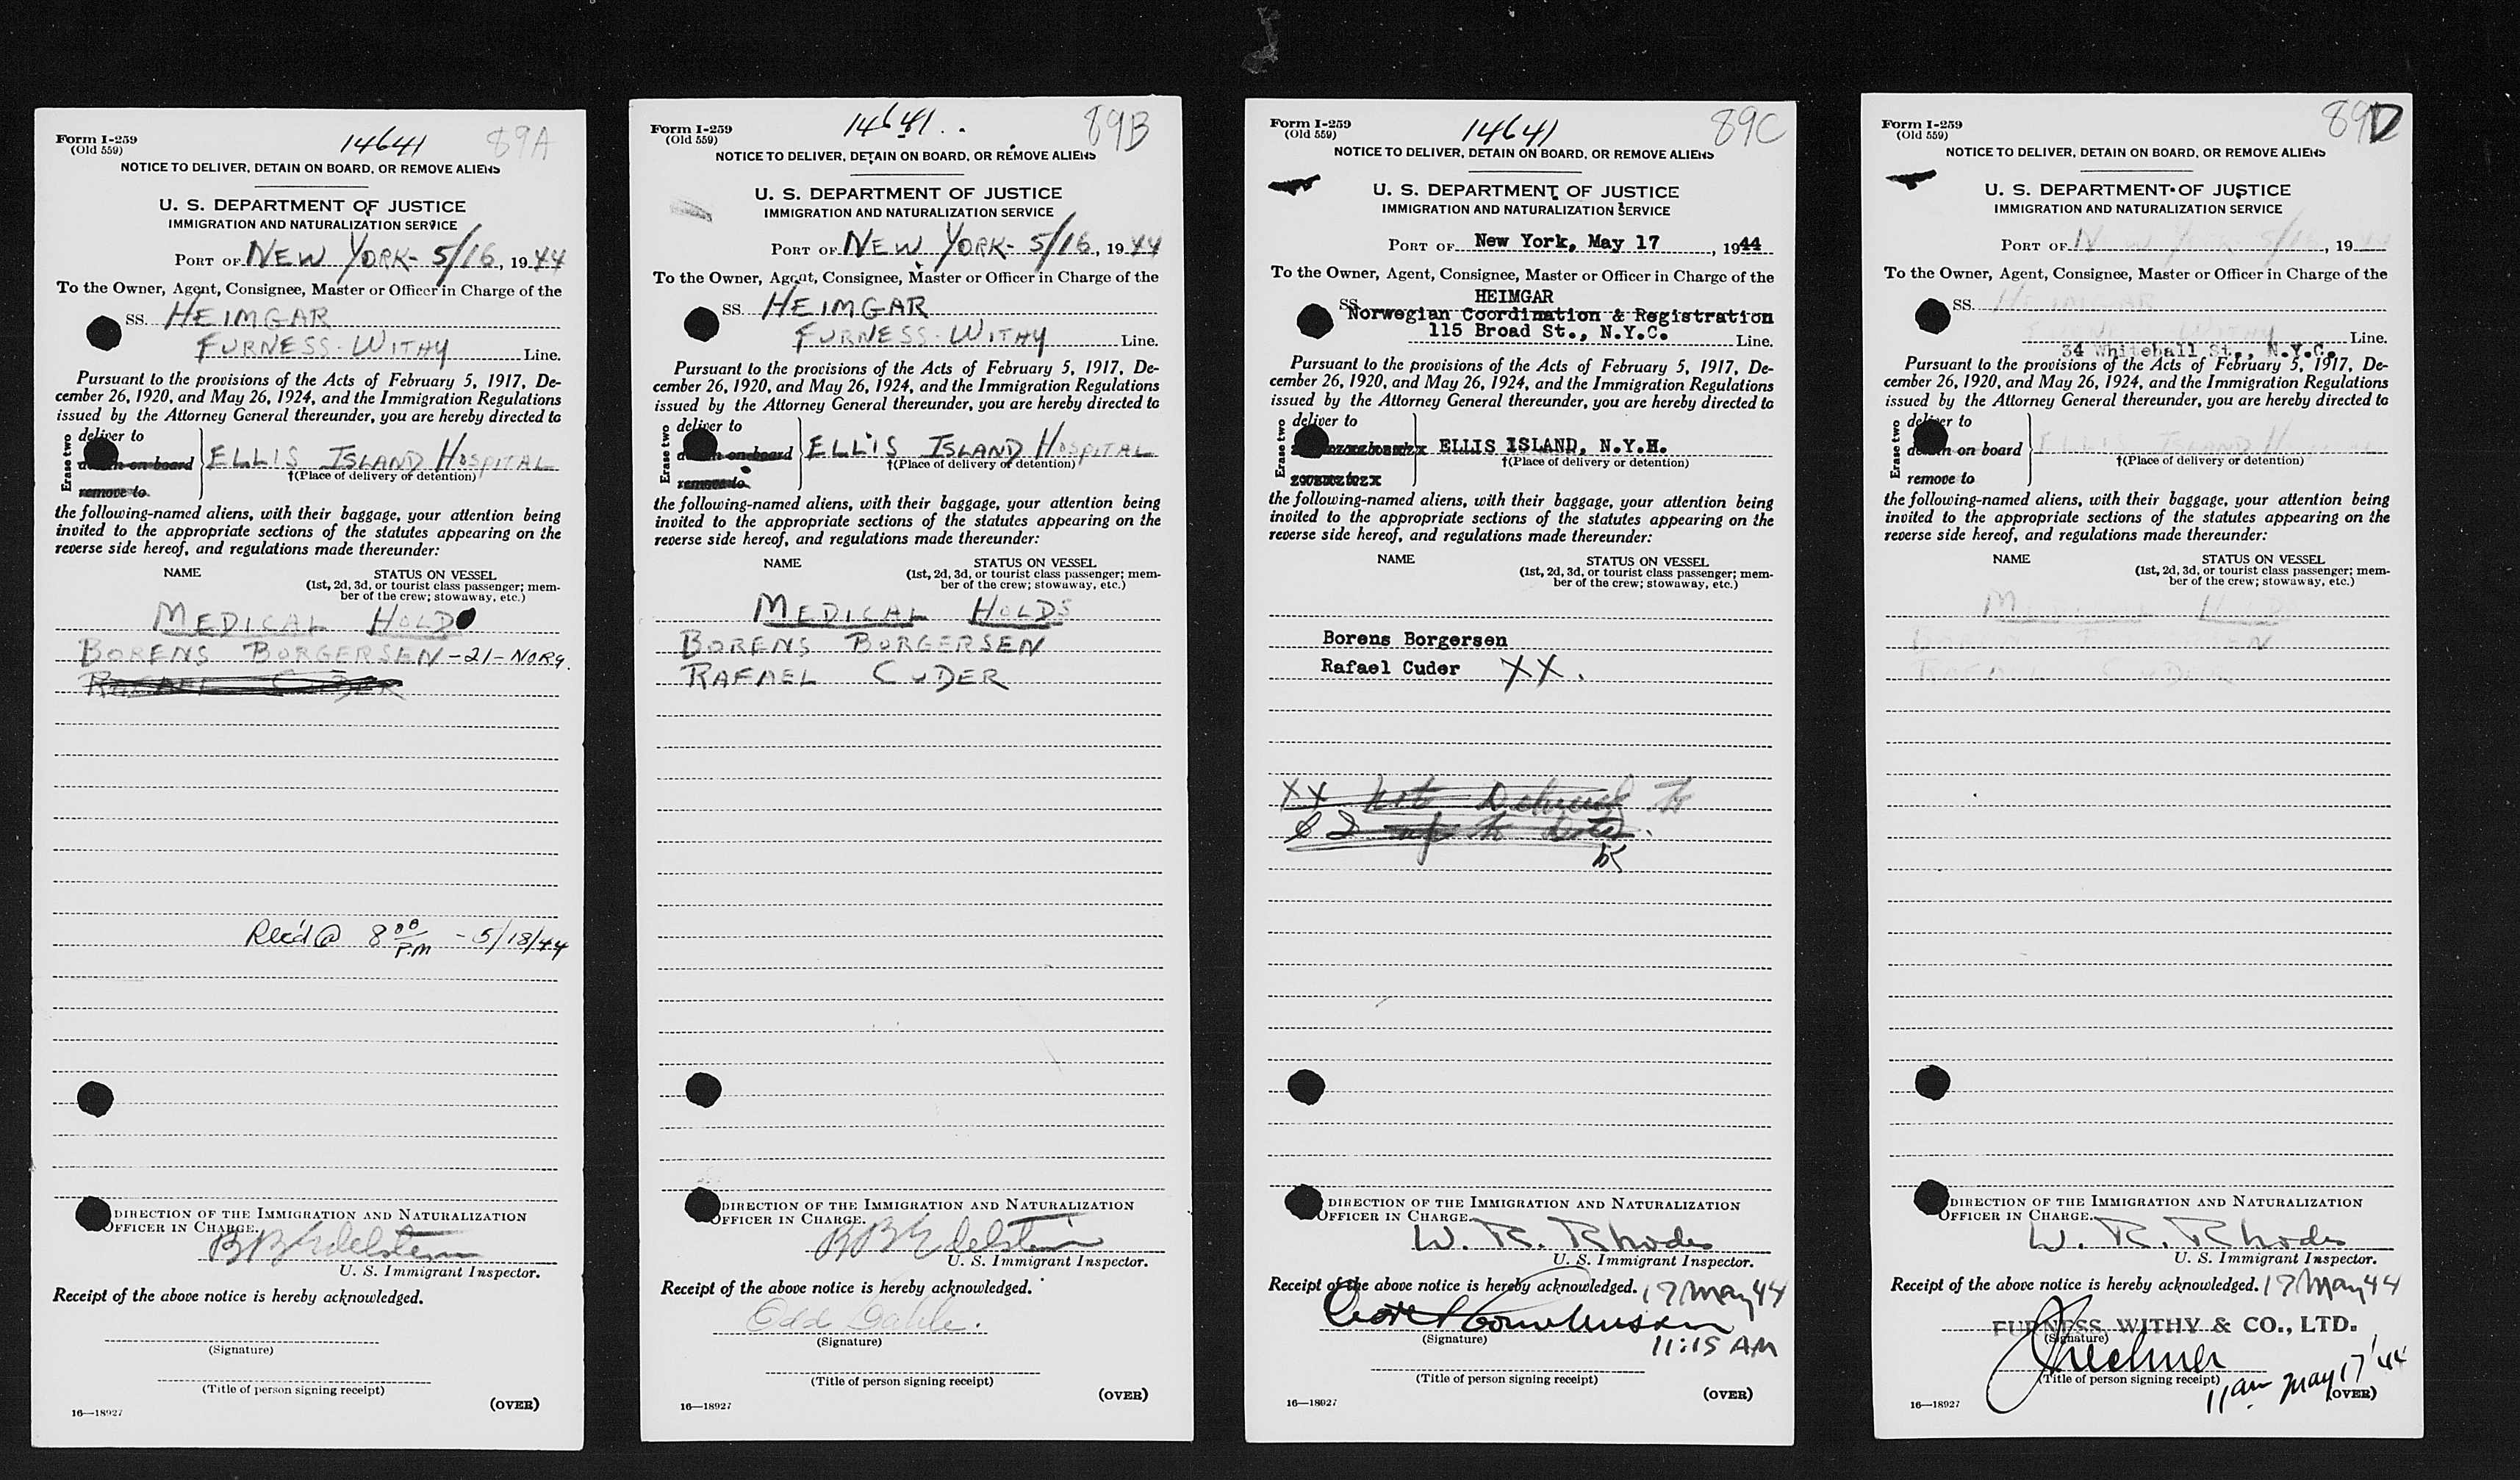 Form I-259
(Old 559)
14641
89A
NOTICE TO DELIVER, DETAIN ON BOARD, OR REMOVE ALIENS
U. S. DEPARTMENT OF JUSTICE
IMMIGRATION AND NATURALIZATION SERVICE
PORT OF NEW YORK - 5/16, 1944
To the Owner, Agent, Consignee, Master or Officer in Charge of the
SS. HEIMGAR
FURNESS-WITHY Line.
Pursuant to the provisions of the Acts of February 5, 1917, De-
cember 26, 1920, and May 26, 1924, and the Immigration Regulations
issued by the Attorney General thereunder, you are hereby directed to
Erase two
deliver to
on board
remove to
ELLIS ISLAND HOSPITAL
†(Place of delivery or detention)
the following-named aliens, with their baggage, your attention being
invited to the appropriate sections of the statutes appearing on the
reverse side hereof, and regulations made thereunder:
NAME
STATUS ON VESSEL
(1st, 2d, 3d, or tourist class passenger; mem-
ber of the crew; stowaway, etc.)
MEDICAL HOLD
BORENS BORGERSEN -21- NORG.
RAFAEL CUDER
Rec'd @ 8 00 P.M - 5/18/44
DIRECTION OF THE IMMIGRATION AND NATURALIZATION
OFFICER IN CHARGE.
B B Edelstein
U. S. Immigrant Inspector.
Receipt of the above notice is hereby acknowledged.
(Signature)
(Title of person signing receipt)
(OVER)
16—18927
Form I-259
(Old 559)
14641
89B
NOTICE TO DELIVER, DETAIN ON BOARD, OR REMOVE ALIENS
U. S. DEPARTMENT OF JUSTICE
IMMIGRATION AND NATURALIZATION SERVICE
PORT OF NEW YORK - 5/16, 1944
To the Owner, Agent, Consignee, Master or Officer in Charge of the
SS. HEIMGAR
FURNESS-WITHY Line.
Pursuant to the provisions of the Acts of February 5, 1917, De-
cember 26, 1920, and May 26, 1924, and the Immigration Regulations
issued by the Attorney General thereunder, you are hereby directed to
Erase two
deliver to
on board
remove to
ELLIS ISLAND HOSPITAL
†(Place of delivery or detention)
the following-named aliens, with their baggage, your attention being
invited to the appropriate sections of the statutes appearing on the
reverse side hereof, and regulations made thereunder:
NAME
STATUS ON VESSEL
(1st, 2d, 3d, or tourist class passenger; mem-
ber of the crew; stowaway, etc.)
MEDICAL HOLDS
BORENS BORGERSEN
RAFAEL CUDER
DIRECTION OF THE IMMIGRATION AND NATURALIZATION
OFFICER IN CHARGE.
B B Edelstein
U. S. Immigrant Inspector.
Receipt of the above notice is hereby acknowledged.
Odd Dahle.
(Signature)
(Title of person signing receipt)
(OVER)
16—18927
Form I-259
(Old 559)
14641
89C
NOTICE TO DELIVER, DETAIN ON BOARD, OR REMOVE ALIENS
U. S. DEPARTMENT OF JUSTICE
IMMIGRATION AND NATURALIZATION SERVICE
PORT OF New York, May 17, 1944
To the Owner, Agent, Consignee, Master or Officer in Charge of the
HEIMGAR
SS. Norwegian Coordination & Registration
115 Broad St., N.Y.C. Line.
Pursuant to the provisions of the Acts of February 5, 1917, De-
cember 26, 1920, and May 26, 1924, and the Immigration Regulations
issued by the Attorney General thereunder, you are hereby directed to
Erase two
deliver to
ELLIS ISLAND, N.Y.H.
†(Place of delivery or detention)
the following-named aliens, with their baggage, your attention being
invited to the appropriate sections of the statutes appearing on the
reverse side hereof, and regulations made thereunder:
NAME
STATUS ON VESSEL
(1st, 2d, 3d, or tourist class passenger; mem-
ber of the crew; stowaway, etc.)
Borens Borgersen
Rafael Cuder XX.
XX Not Delivered to
E I up to date.
DIRECTION OF THE IMMIGRATION AND NATURALIZATION
OFFICER IN CHARGE.
W. R. Rhodes
U. S. Immigrant Inspector.
Receipt of the above notice is hereby acknowledged. 17 May 44
(Signature)
11:15 AM
(Title of person signing receipt)
(OVER)
16—18927
Form I-259
(Old 559)
89D
NOTICE TO DELIVER, DETAIN ON BOARD, OR REMOVE ALIENS
U. S. DEPARTMENT OF JUSTICE
IMMIGRATION AND NATURALIZATION SERVICE
PORT OF New York 5/16, 1944
To the Owner, Agent, Consignee, Master or Officer in Charge of the
SS. HEIMGAR
WITHY Line.
34 Whitehall St., N.Y.C.
Pursuant to the provisions of the Acts of February 5, 1917, De-
cember 26, 1920, and May 26, 1924, and the Immigration Regulations
issued by the Attorney General thereunder, you are hereby directed to
Erase two
deliver to
on board
remove to
ELLIS ISLAND HOSPITAL
†(Place of delivery or detention)
the following-named aliens, with their baggage, your attention being
invited to the appropriate sections of the statutes appearing on the
reverse side hereof, and regulations made thereunder:
NAME
STATUS ON VESSEL
(1st, 2d, 3d, or tourist class passenger; mem-
ber of the crew; stowaway, etc.)
RAFAEL CUDER
DIRECTION OF THE IMMIGRATION AND NATURALIZATION
OFFICER IN CHARGE.
W. R. Rhodes
U. S. Immigrant Inspector.
Receipt of the above notice is hereby acknowledged. 17 May 44
FURNESS WITHY & CO., LTD.
(Signature)
(Title of person signing receipt)
11am May 17 '44
(OVER)
16—18927